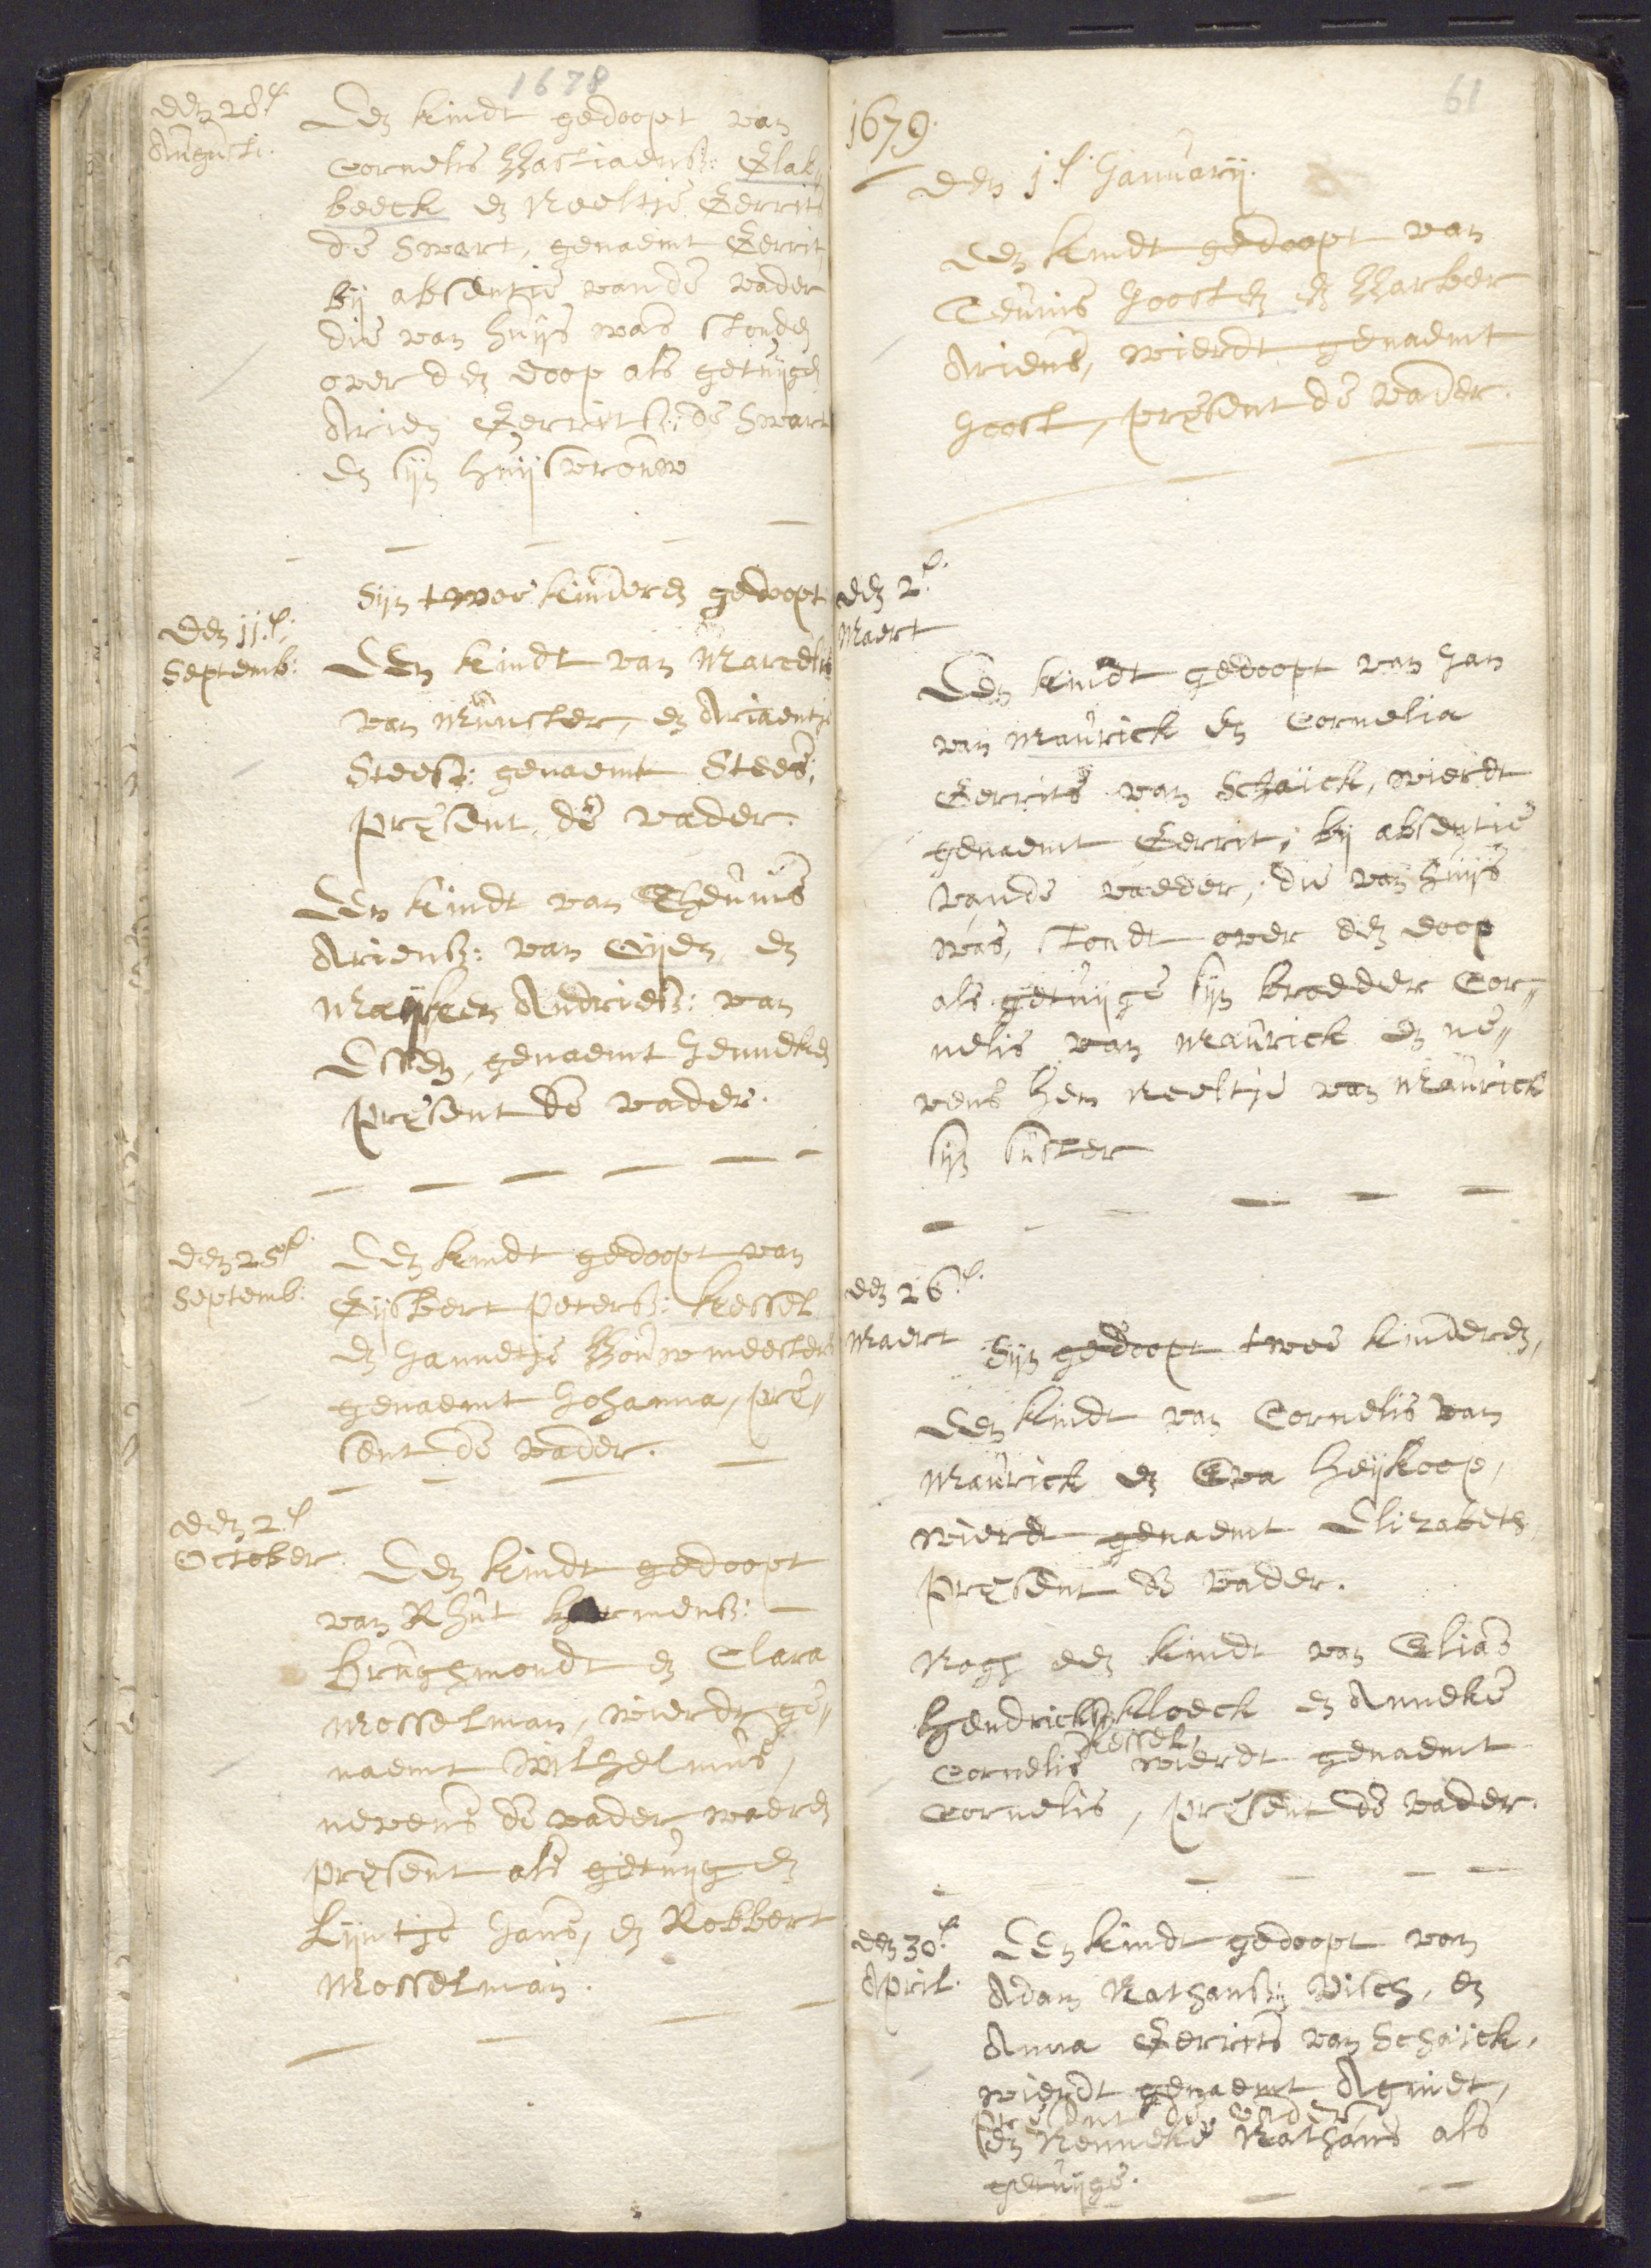 1678
den 28.e
Augusti.
Een kindt gedoopt van
Cornelis Bastiaensz: Glab„
beeck en Neeltje Gerrits
de Swart, genaemt Gerrit,
bij absentie vande vader
die van huijs was stonden
over den doop als getuijgen
Arien Gerritsz: de Swart
en sijn huijsvrouw
Sijn twee kinderen gedoopt
den 11.e
Septemb:
Een kindt van Marcelis
van Munster, en Ariaentje
Steesz: genaemt Stees,
præsent de vader.
Een kindt van Theunis
Ariensz: van Eijden en
Maijken Andriesz: van
Essen, genaemt Henneken
præsent de vader.
den 25.e
Septemb:
Een kindt gedoopt van
Gijsbert Petersz: Kessel
en Hannetje Bouwmeesters
genaemt Johanna, præ„
sent de vader.
den 2.e
October.
Een kindt gedoopt
van Rhut Hermensz:
Brughmondt en Clara
Mosselman, wierdt ge„
naemt Wilhelmus,
nevens de vader waeren
præsent als getuijgen
Lijntje Jans, en Robbert
Mosselman.
61
1679.
den 1.e Januarij.
Een kindt gedoopt van
Teunis Joosten en Barber
Ariens, wierdt genaemt
Joost, præsent de vader.
den 2.e
Maert
Een kindt gedoopt van Jan
van Maurick en Cornelia
Gerrits van Schaick, wierdt
genaemt Gerrit, bij absentie
vande vaeder, die van huijs
was, stondt over den doop
als getuijge sijn broeder Cor„
nelis van Maurick en ne„
vens hem Neeltje van Maurick
sijn suster
den 26.e
Maert
Sijn gedoopt twee kinderen,
Een kindt van Cornelis van
Maurick en Eva Heijkoop,
wierdt genaemt Elizabeth,
præsent de vader.
Nogh een kindt van Elias
Hendricksz: Kloeck en Anneke
Kessel,
Cornelis wierdt genaemt
Cornelis, præsent de vader.
den 30.e
April.
Een kindt gedoopt van
Adam Nathansz: Visch, en
Anna Gerrits van Schaick,
wierdt genaemt Agniet,
præsent de vader
en Nenneke Nathans als
getuijge.